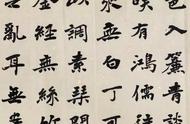 入簾青談
咲有鴻儒往
来無白丁可
以調素琴閱
金經無絲竹
之亂耳無案